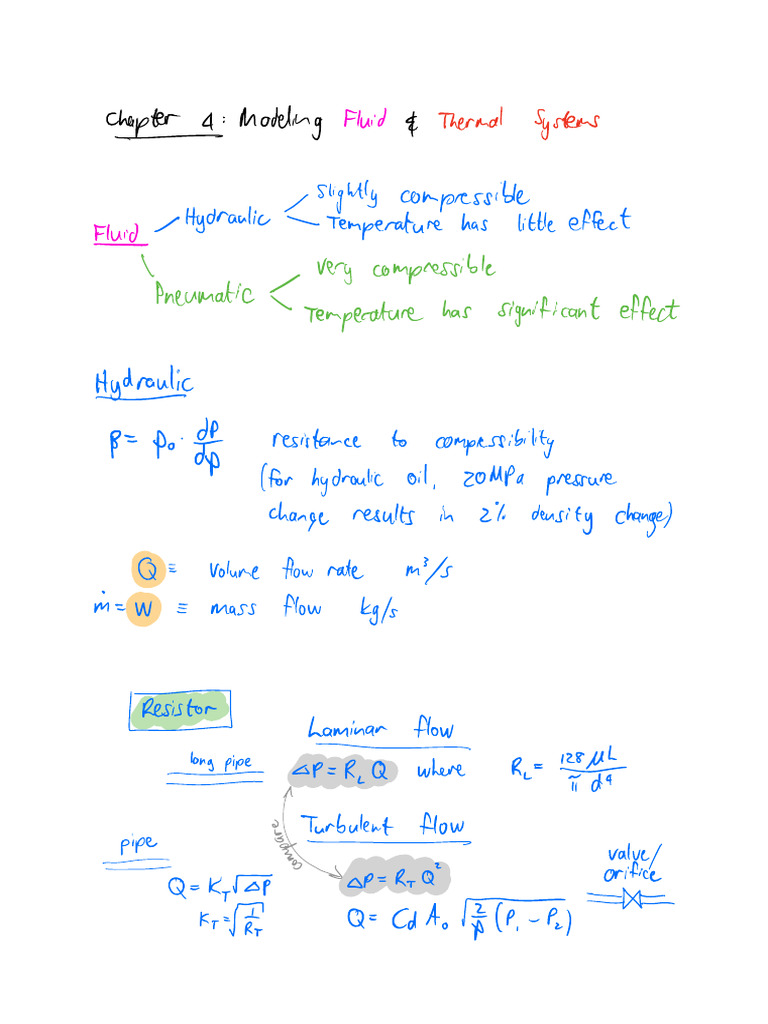 Chapter 4: Modeling Fluid & Thermal Systems
Fluid
Hydraulic
Slightly compressible
Temperature has little effect
Pneumatic
very compressible
Temperature has significant effect
Hydraulic
β = ρ₀ · dP/dρ resistance to compessibility
(for hydraulic oil, 20MPa pressure
change results in 2% density change)
Q ≡ volume flow rate m³/s
ṁ = W ≡ mass flow kg/s
Resistor
Laminar flow
long pipe ΔP = R_L Q where R_L = 128 μL / π d⁴
compare
Turbulent flow
pipe
valve/
orifice
Q = K_T √ΔP
ΔP = R_T Q²
K_T = √(1/R_T)
Q = Cd A₀ √(2/ρ (P₁ − P₂))